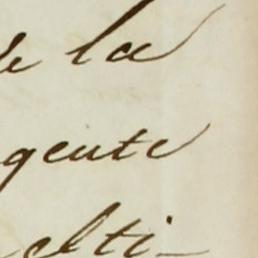 de la
gente
elti-